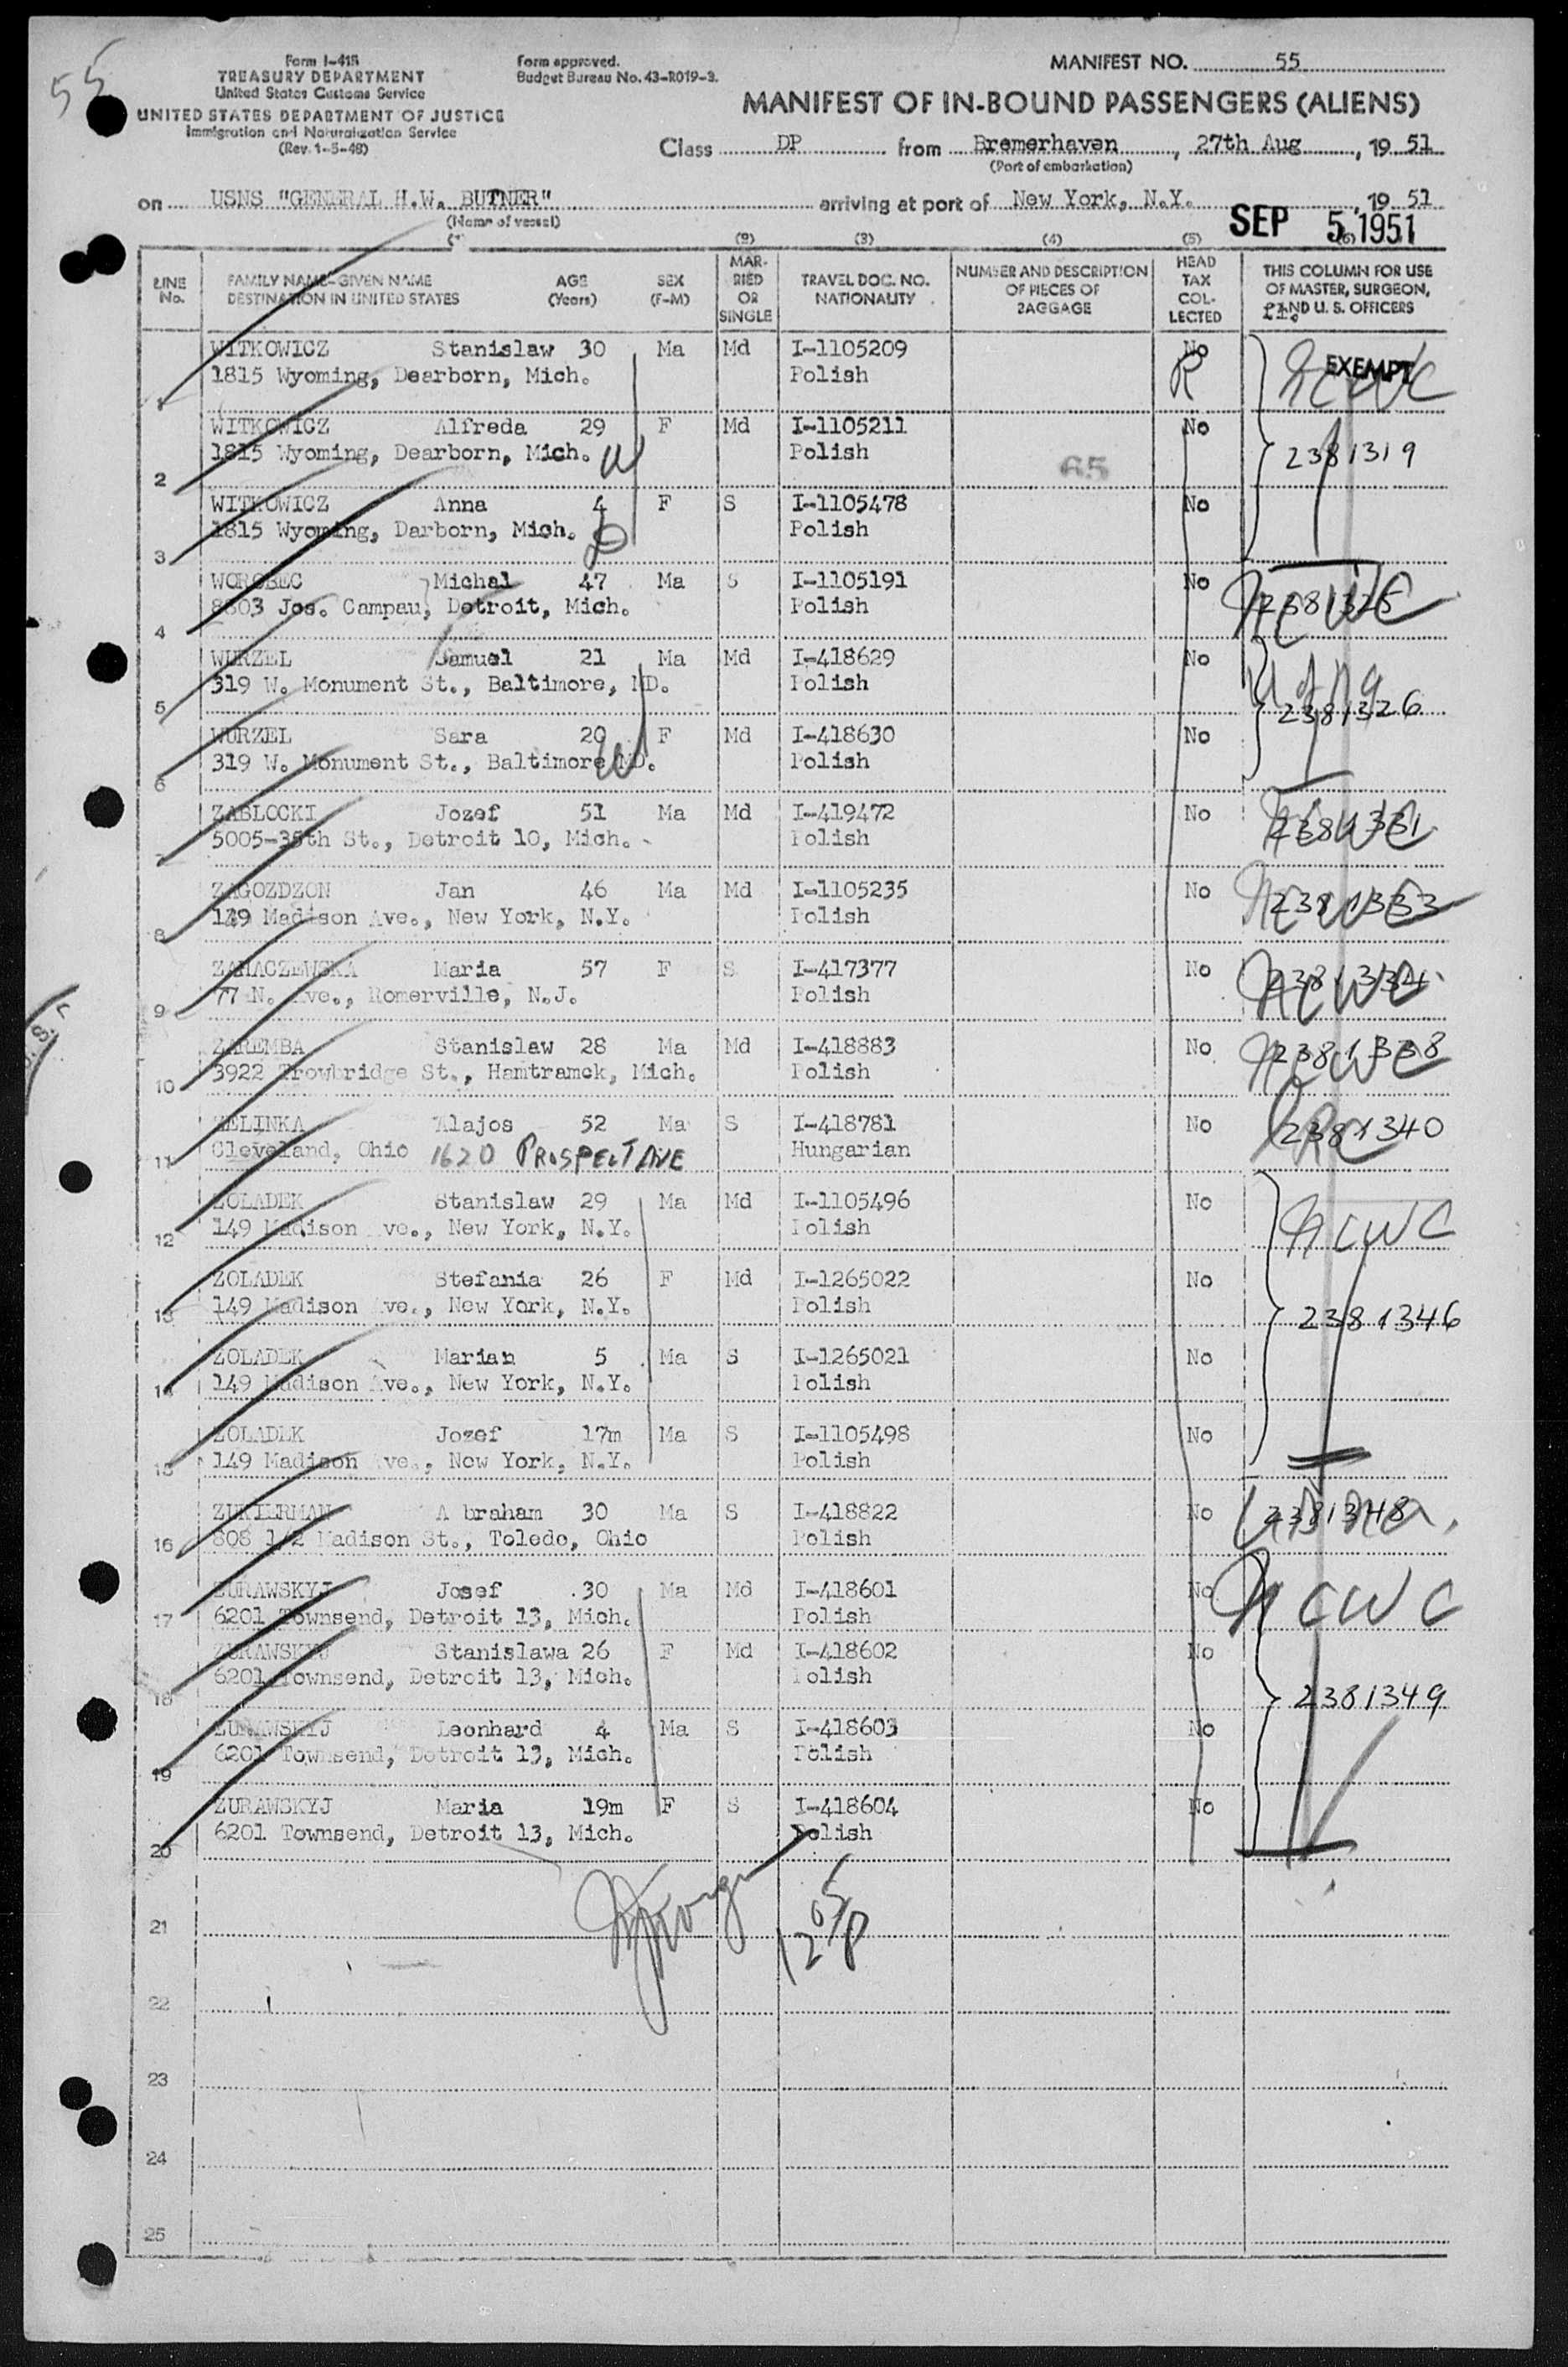 55
Form I-415
TREASURY DEPARTMENT
United States Customs Service
UNITED STATES DEPARTMENT OF JUSTICE
Immigration and Naturalization Service
(Rev. 1-5-48)
Form approved.
Budget Bureau No. 43-R019-3.
MANIFEST NO. 55
MANIFEST OF IN-BOUND PASSENGERS (ALIENS)
Class DP from Bremerhaven, 27th Aug, 19 51
(Port of embarkation)
on USNS "GENERAL H.W. BUTNER" arriving at port of New York, N.Y. 19 51
(Name of vessel)
SEP 5 1951
(2) (3) (4) (5)
LINE No. FAMILY NAME-GIVEN NAME DESTINATION IN UNITED STATES AGE (Years) SEX (F-M) MARRIED OR SINGLE TRAVEL DOC. NO. NATIONALITY NUMBER AND DESCRIPTION OF PIECES OF BAGGAGE HEAD TAX COLLECTED THIS COLUMN FOR USE OF MASTER, SURGEON, AND U. S. OFFICERS
WITKOWICZ Stanislaw 30 Ma Md I-1105209 No EXEMPT NCWC
1 1815 Wyoming, Dearborn, Mich. Polish R
WITKOWICZ Alfreda 29 F Md I-1105211 No
2 1815 Wyoming, Dearborn, Mich. W Polish 65 2381319
WITKOWICZ Anna 4 F S I-1105478 No
3 1815 Wyoming, Darborn, Mich. Polish
WOROBEC Michal 47 Ma S I-1105191 No NCWC
4 8803 Jos. Campau, Detroit, Mich. Polish 2381325
WURZEL Samuel 21 Ma Md I-418629 No
5 319 W. Monument St., Baltimore, MD. Polish 2381326
WURZEL Sara 20 F Md I-418630 No
6 319 W. Monument St., Baltimore MD. W Polish
ZABLOCKI Jozef 51 Ma Md I-419472 No NCWC
7 5005-35th St., Detroit 10, Mich. Polish 2381331
ZAGOZDZON Jan 46 Ma Md I-1105235 No NCWC
8 149 Madison Ave., New York, N.Y. Polish 2381333
ZARACZEWSKA Maria 57 F S I-417377 No NCWC
9 77 N. Ave., Romerville, N.J. Polish 2381334
ZAREMBA Stanislaw 28 Ma Md I-418883 No NCWC
10 3922 Trowbridge St., Hamtramck, Mich. Polish 2381338
ZELINKA Alajos 52 Ma S I-418781 No
11 Cleveland, Ohio 1620 PROSPECT AVE Hungarian 2381340
ZOLADEK Stanislaw 29 Ma Md I-1105496 No
12 149 Madison Ave., New York, N.Y. Polish NCWC
ZOLADEK Stefania 26 F Md I-1265022 No
13 149 Madison Ave., New York, N.Y. Polish 2381346
ZOLADEK Marian 5 Ma S I-1265021 No
14 149 Madison Ave., New York, N.Y. Polish
ZOLADEK Jozef 17m Ma S I-1105498 No
15 149 Madison Ave., New York, N.Y. Polish
ZUKIERMAN A braham 30 Ma S I-418822 No 2381348
16 808 1/2 Madison St., Toledo, Ohio Polish
ZURAWSKYJ Josef 30 Ma Md I-418601 No NCWC
17 6201 Townsend, Detroit 13, Mich. Polish
ZURAWSKYJ Stanislawa 26 F Md I-418602 No
18 6201 Townsend, Detroit 13, Mich. Polish 2381349
ZURAWSKYJ Leonhard 4 Ma S I-418603 No
19 6201 Townsend, Detroit 13, Mich. Polish
ZURAWSKYJ Maria 19m F S I-418604 No
20 6201 Townsend, Detroit 13, Mich. Polish
21
22
23
24
25